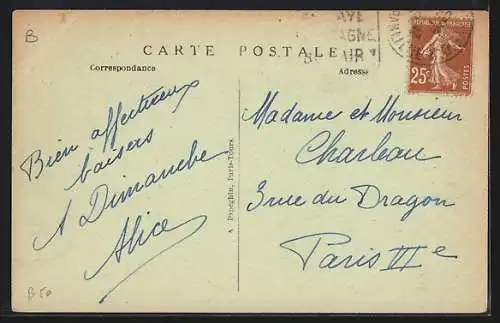 B
AYE
AGNE
AIR
CARTE POSTALE
Correspondance
Adresse
RÉPUBLIQUE FRANÇAISE
25c
POSTES
Bien affectueux
baisers
A Dimanche
Alice
Madame et Monsieur
Charleau
3 rue du Dragon
Paris IIe
A. Papeghin, Paris-Tours.
B50